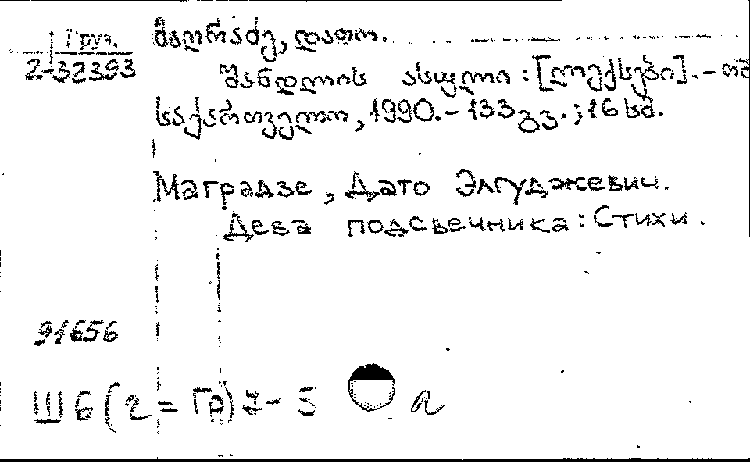 Груз.
2-32393
მაღრაძე, დათო.
შანდლის ასული : [ლექსები]. - თბ
საქართველო, 1990. - 133 გვ. ; 16 სმ.
Маградзе, Дато Элгуджевич.
Дева подсвечника : Стихи.
91656
Ш6(2=Гр)7-5 а